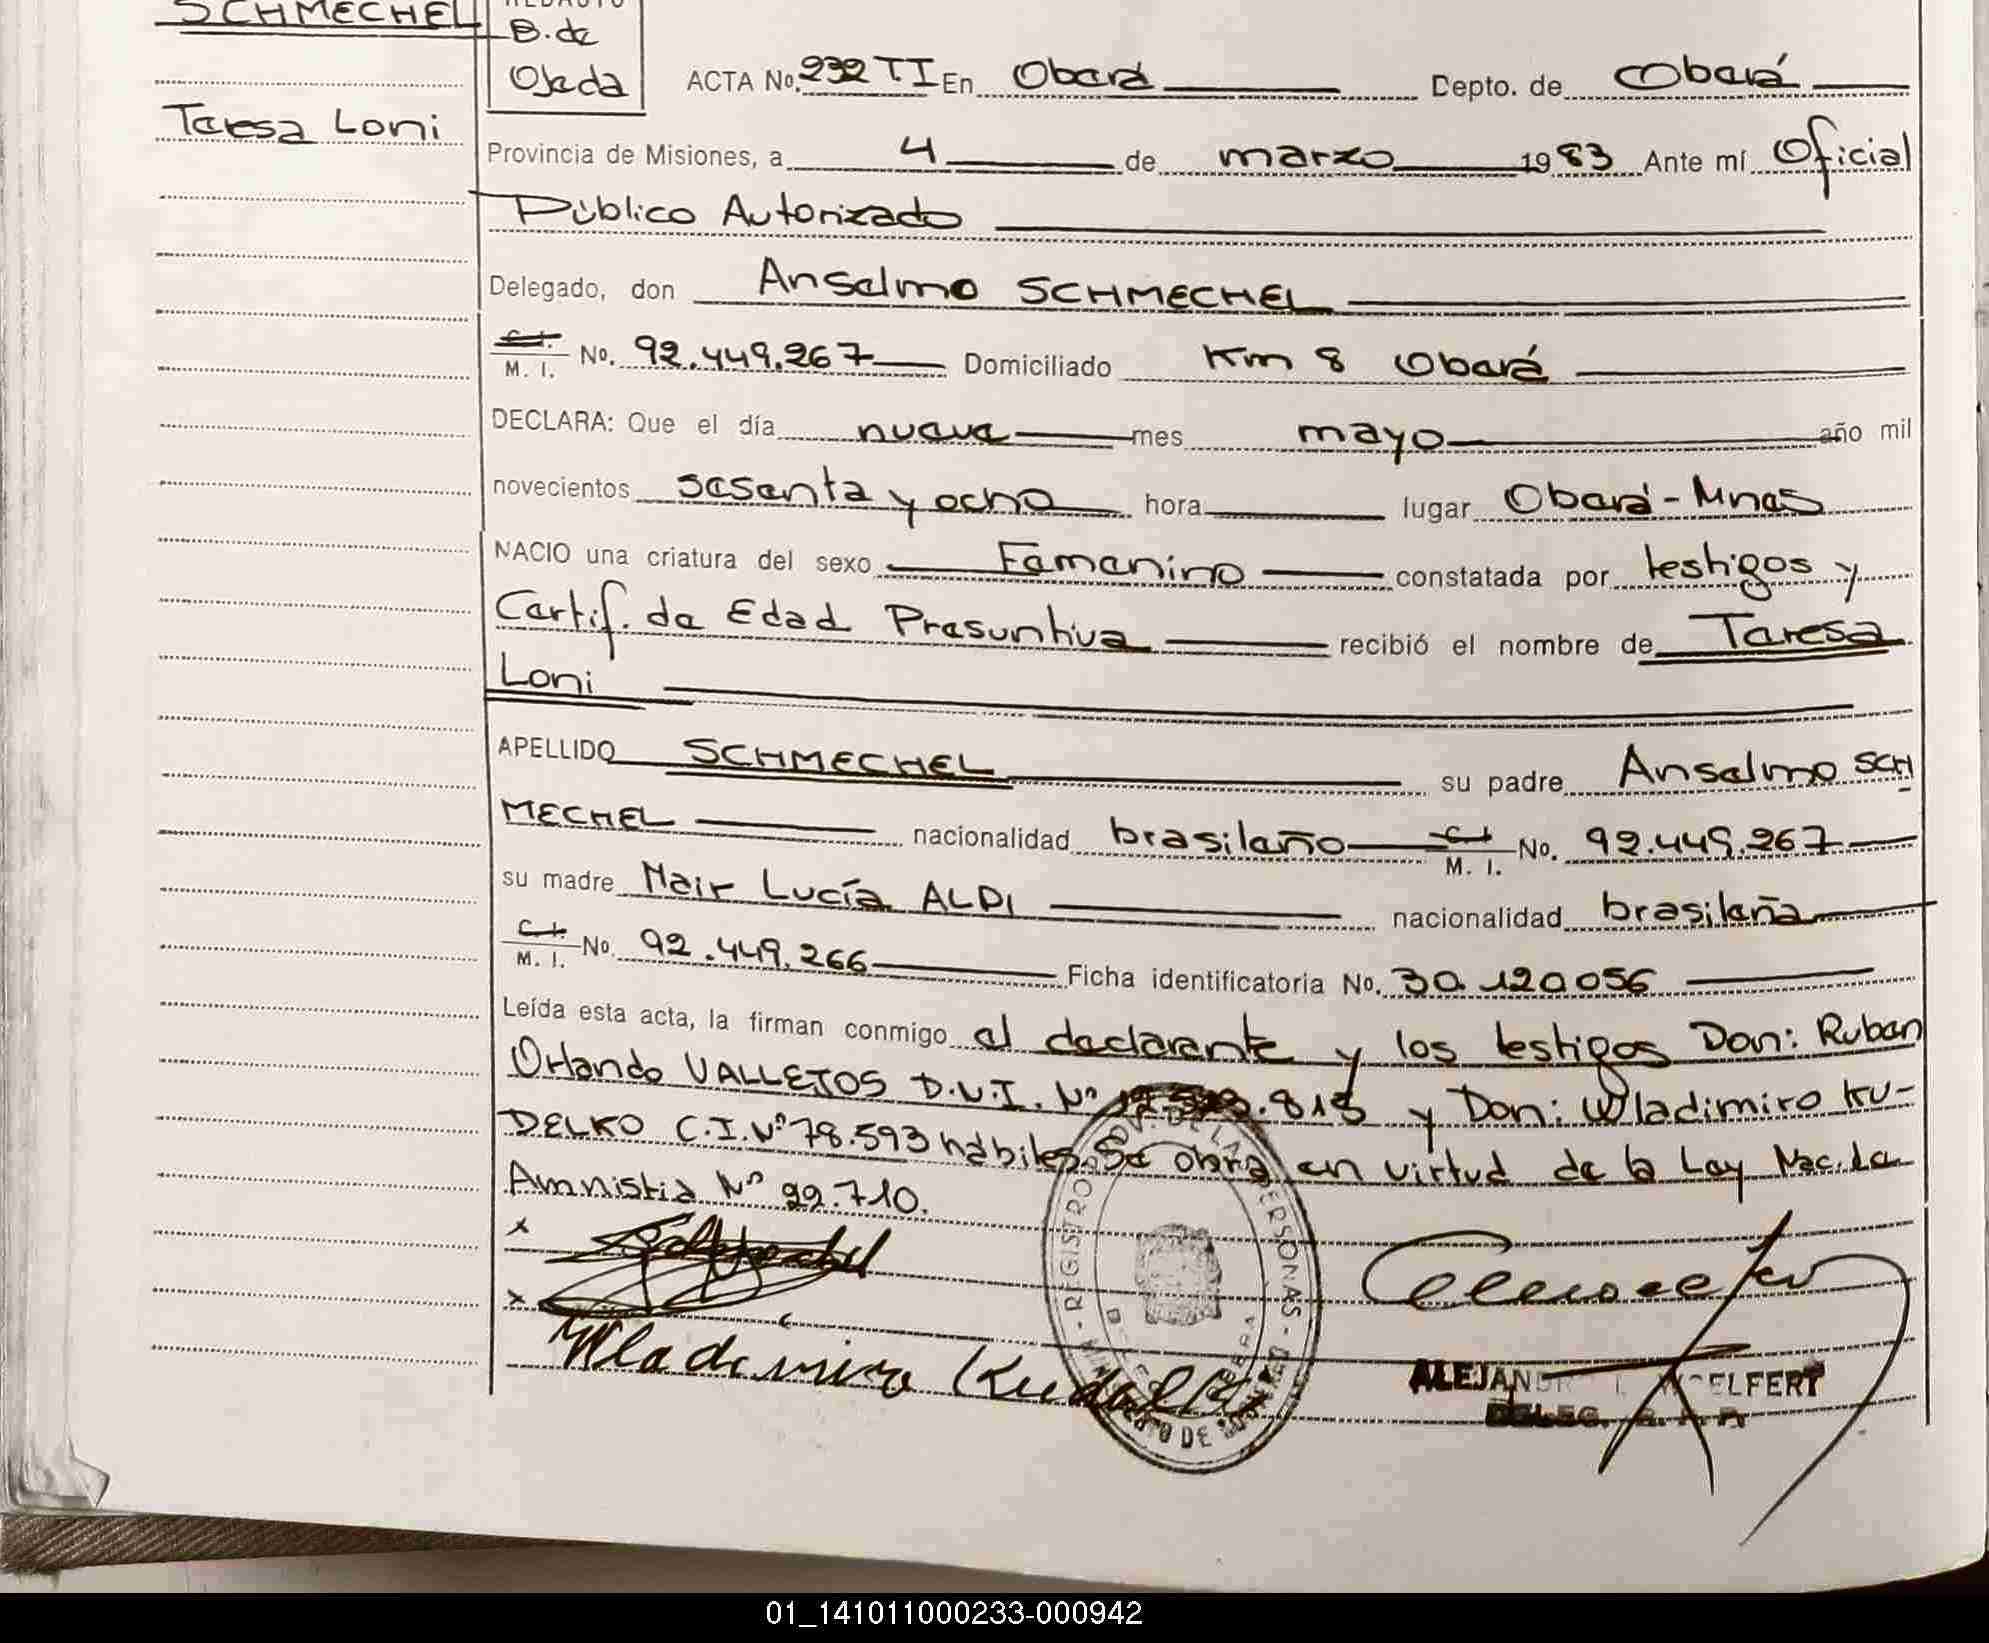 SCHMECHEL
Teresa Loni
REDACTO
B. de
Ojeda
ACTA No. 232 TI En Oberá Depto. de Oberá
Provincia de Misiones, a 4 de marzo 1983 Ante mí Oficial
Público Autorizado
Delegado, don Anselmo SCHMECHEL
C. I. M. I. No. 92.449.267 Domiciliado Km 8 Oberá
DECLARA: Que el día nueve mes mayo año mil
novecientos sesenta y ocho hora lugar Oberá - Mnes
NACIO una criatura del sexo Femenino constatada por testigos y
Certif. de Edad Presuntiva recibió el nombre de Teresa
Loni
APELLIDO SCHMECHEL su padre Anselmo SCH
MECHEL nacionalidad brasileño C. I. M. I. No. 92.449.267
su madre Nair Lucía ALDI nacionalidad brasileña
C. I. M. I. No. 92.449.266 Ficha identificatoria No. 30.120056
Leída esta acta, la firman conmigo el declarante y los testigos Don: Ruben
Orlando VALLEJOS D.N.I. Nº .818 y Don: Wladimiro KU-
DELKO C.I. Nº 78.593 hábiles. Se obra en virtud de la Ley Nac. de
Amnistia Nº 22.710.
x
x
Wladimiro Kudelko
REGISTRO PROV. DE LAS PERSONAS
OBERA
ALEJANDR WOELFERT
DELEG. R. P. P.
01_141011000233-000942